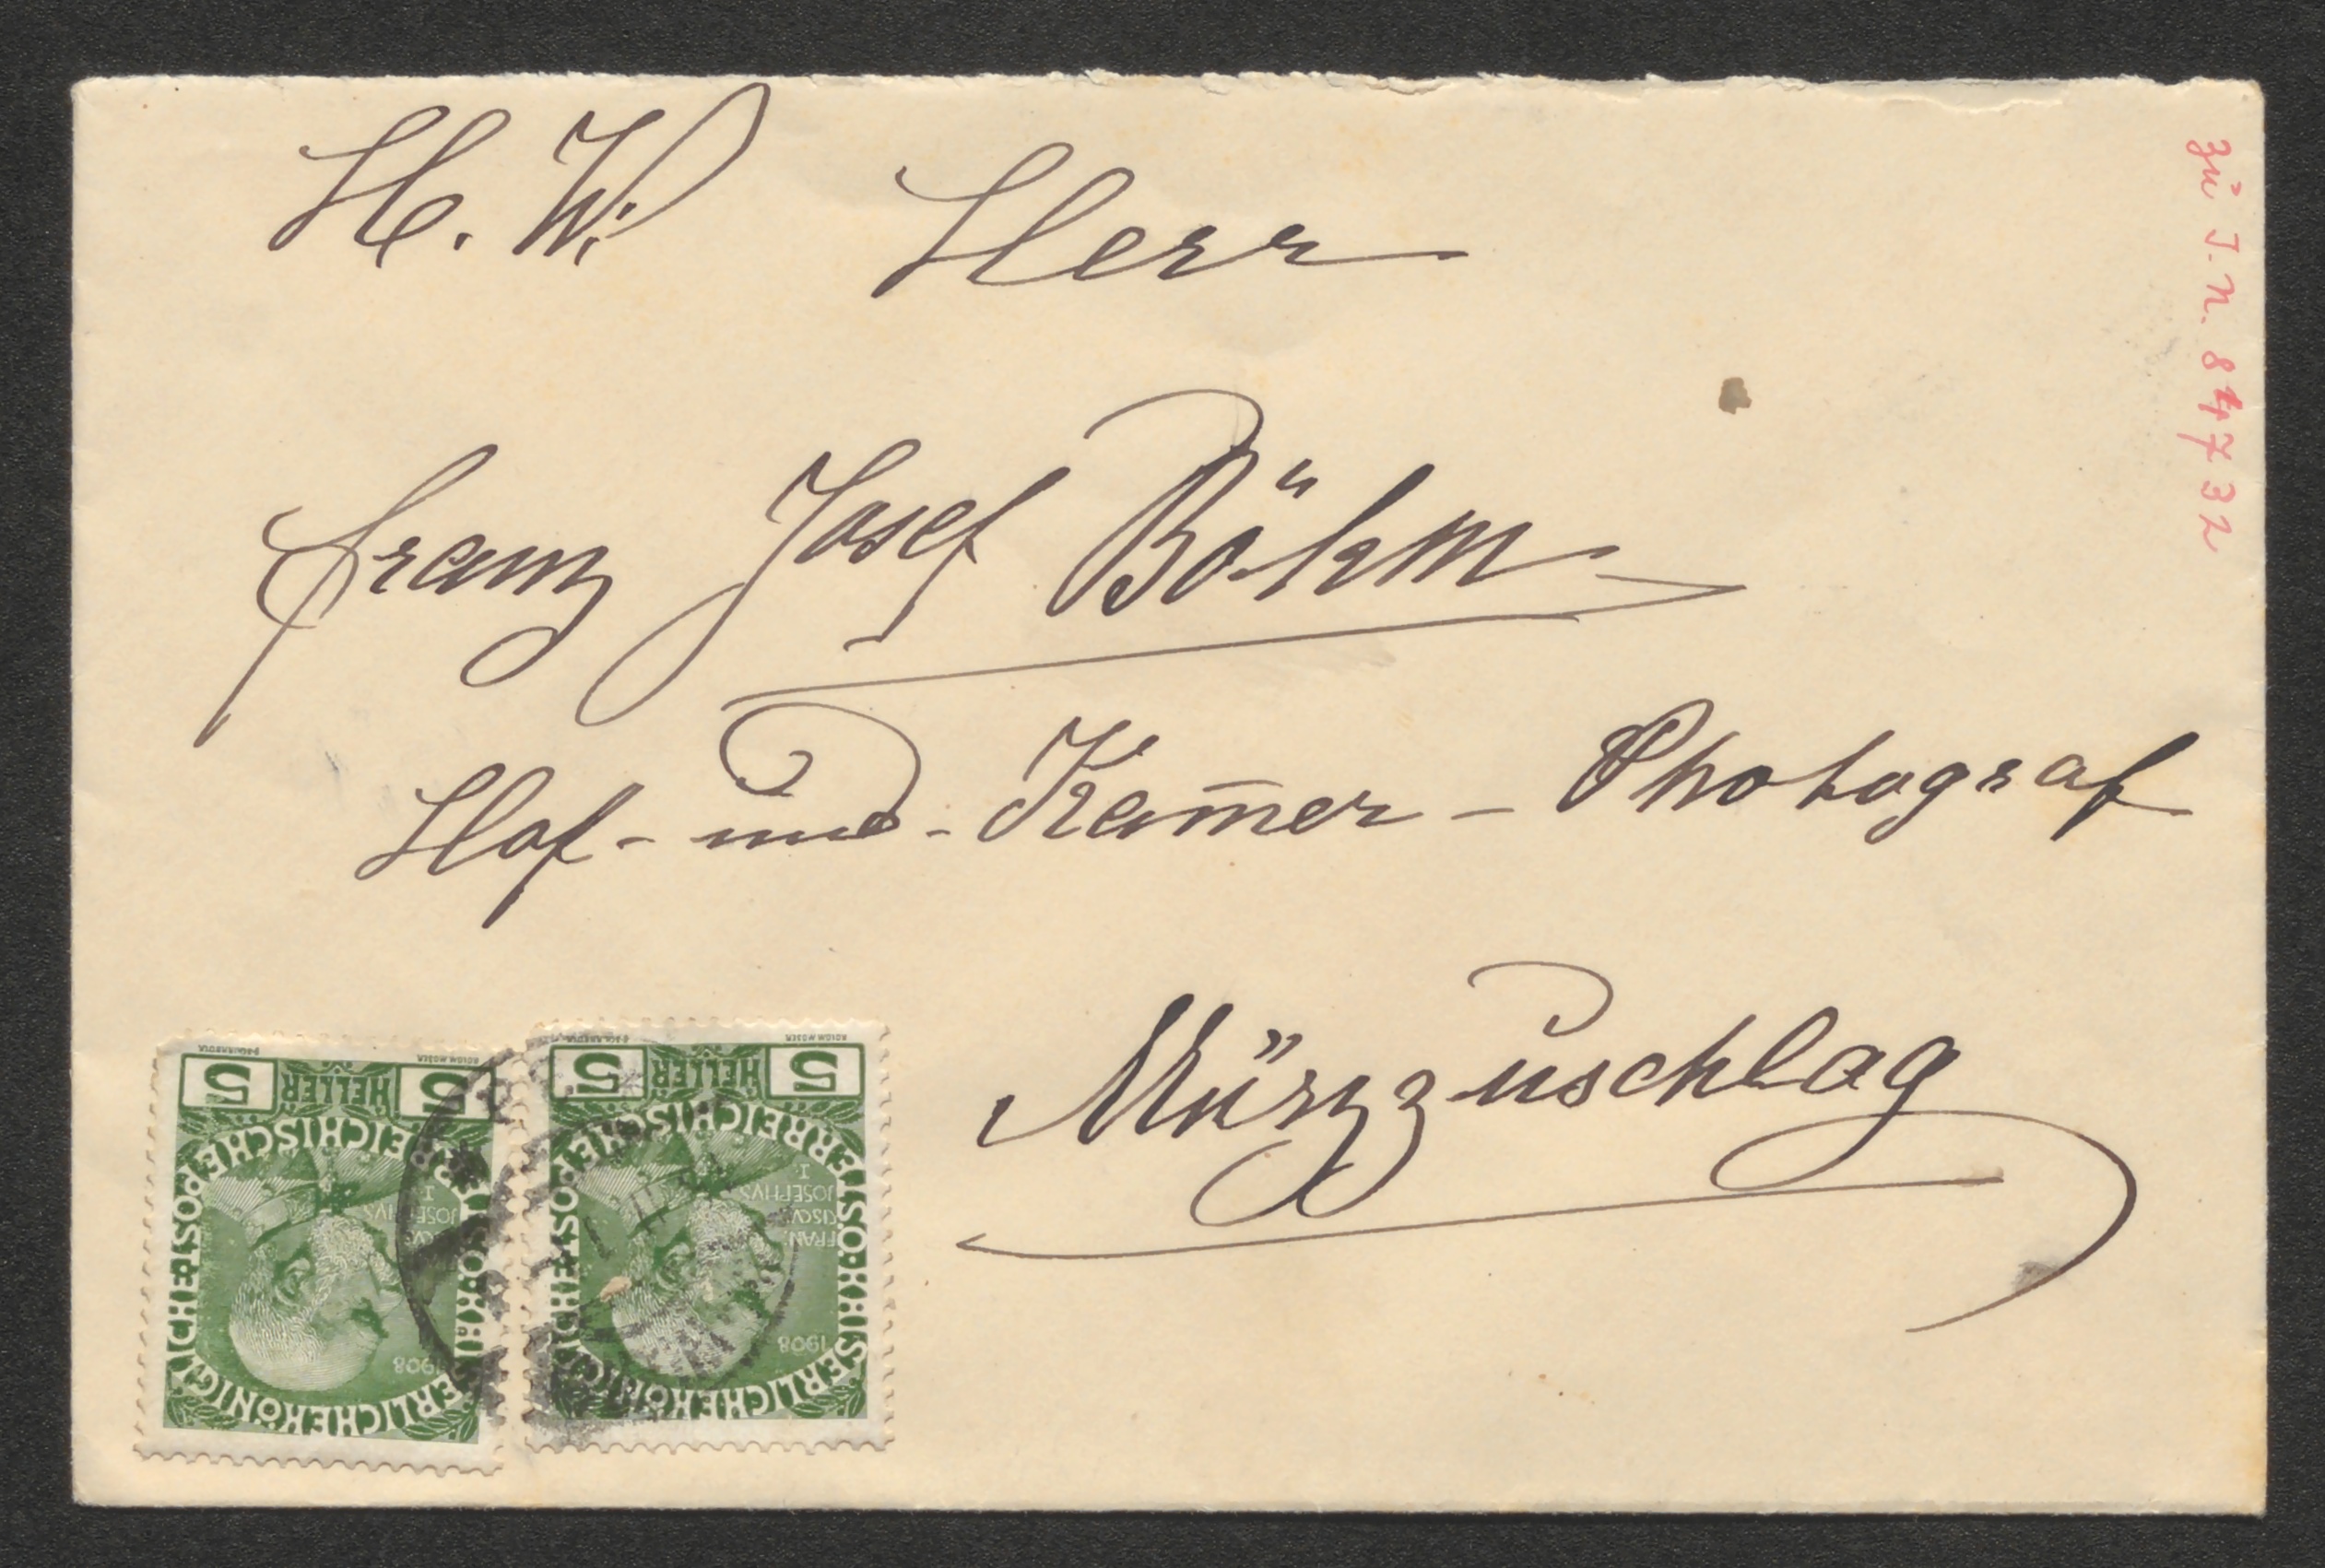 H. W. Herr
Franz Josef Böhm
Hof- und- Kam̅er - Photograf
Mürzzuschlag
zu I. N. 84732
5 HELLER 5
KAISERLICHE KÖNIGLICHE ÖSTERREICHISCHE POST
FRANCISCVS
JOSEPHVS
I
1908
5 HELLER 5
KAISERLICHE KÖNIGLICHE ÖSTERREICHISCHE POST
FRANCISCVS
JOSEPHVS
I
1908